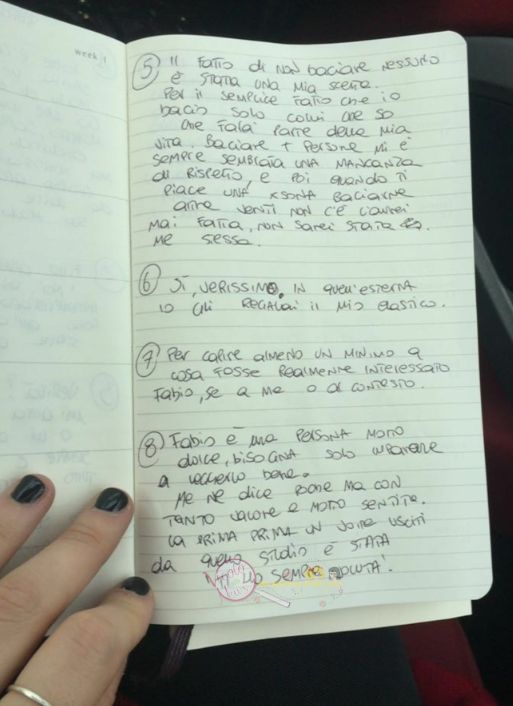 week 1
5 Il fatto di non baciare nessuno
è stata una mia scelta.
Per il semplice fatto che io
bacio solo colui che so
che farà parte della mia
vita. Baciare + persone mi è
sempre sembrata una mancanza
di rispetto, e poi quando ti
piace una xsona baciarne
altre venti non ce l'avrei
mai fatta, non sarei stata
me stessa.
6 Sì, verissimo. In quell'esterna
io gli regalai il mio elastico.
7 Per capire almeno un minimo a
cosa fosse realmente interessato
Fabio, se a me o al contesto.
8 Fabio è una persona molto
dolce, bisogna solo imparare
a volergli bene.
Me ne dice poche ma con
tanto valore e molto sentite.
La prima prima un volta usciti
da quello studio è stata
sempre voluta!